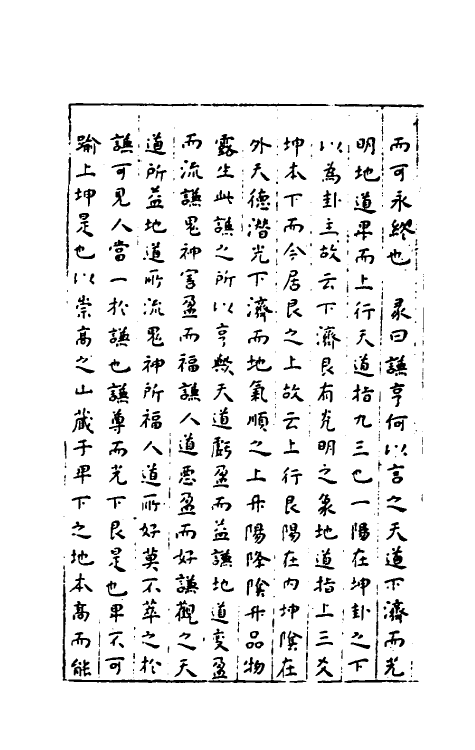 而可永終也　彖曰謙亨何以言之天道下濟而光
明地道卑而上行天道指九三也一陽在坤卦之下
以為卦主故云下濟艮有光明之象地道指上三爻
坤本下而今居艮之上故云上行艮陽在内坤陰在
外天德潛光下濟而地氣順之上升陽降陰升品物
露生此謙之所以亨歟天道虧盈而益謙地道變盈
而流謙鬼神害盈而福謙人道惡盈而好謙觀之天
道所益地道所流鬼神所福人道所好莫不萃之於
謙可見人當一於謙也謙尊而光下艮是也卑不可
踰上坤是也以崇高之山藏于卑下之地本高而能